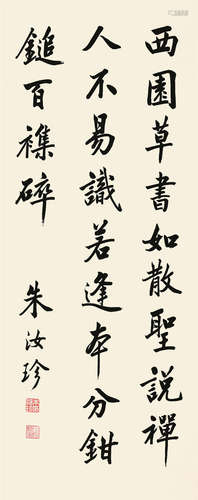 西園草書如散聖說禪
人不易識若逢本分鉗
鎚百襍碎
朱汝珍